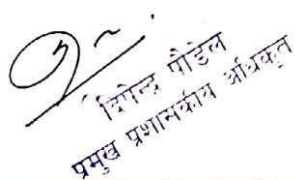 दिपेन्द्र पौडेल
प्रमुख प्रशासकीय अधिकृत